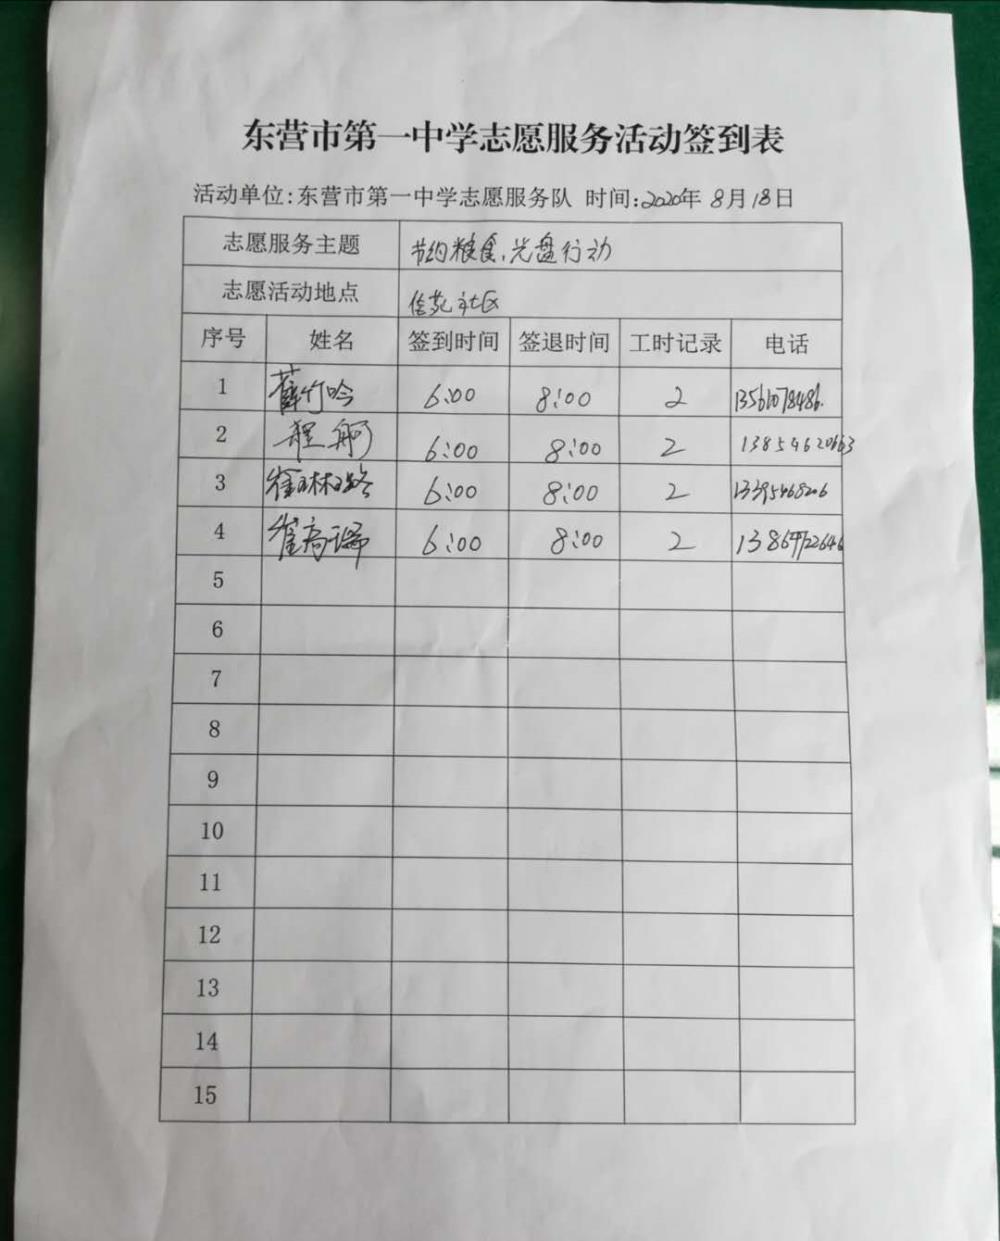 东营市第一中学志愿服务活动签到表
活动单位:东营市第一中学志愿服务队 时间:2020年 8月18日
志愿服务主题 节约粮食,光盘行动
志愿活动地点 佳苑社区
序号 姓名 签到时间 签退时间 工时记录 电话
1 薛竹吟 6:00 8:00 2 13561078486.
2 程舸 6:00 8:00 2 13854620663
3 6:00 8:00 2 13395468206
4 崔高瑞 6:00 8:00 2
5
6
7
8
9
10
11
12
13
14
15